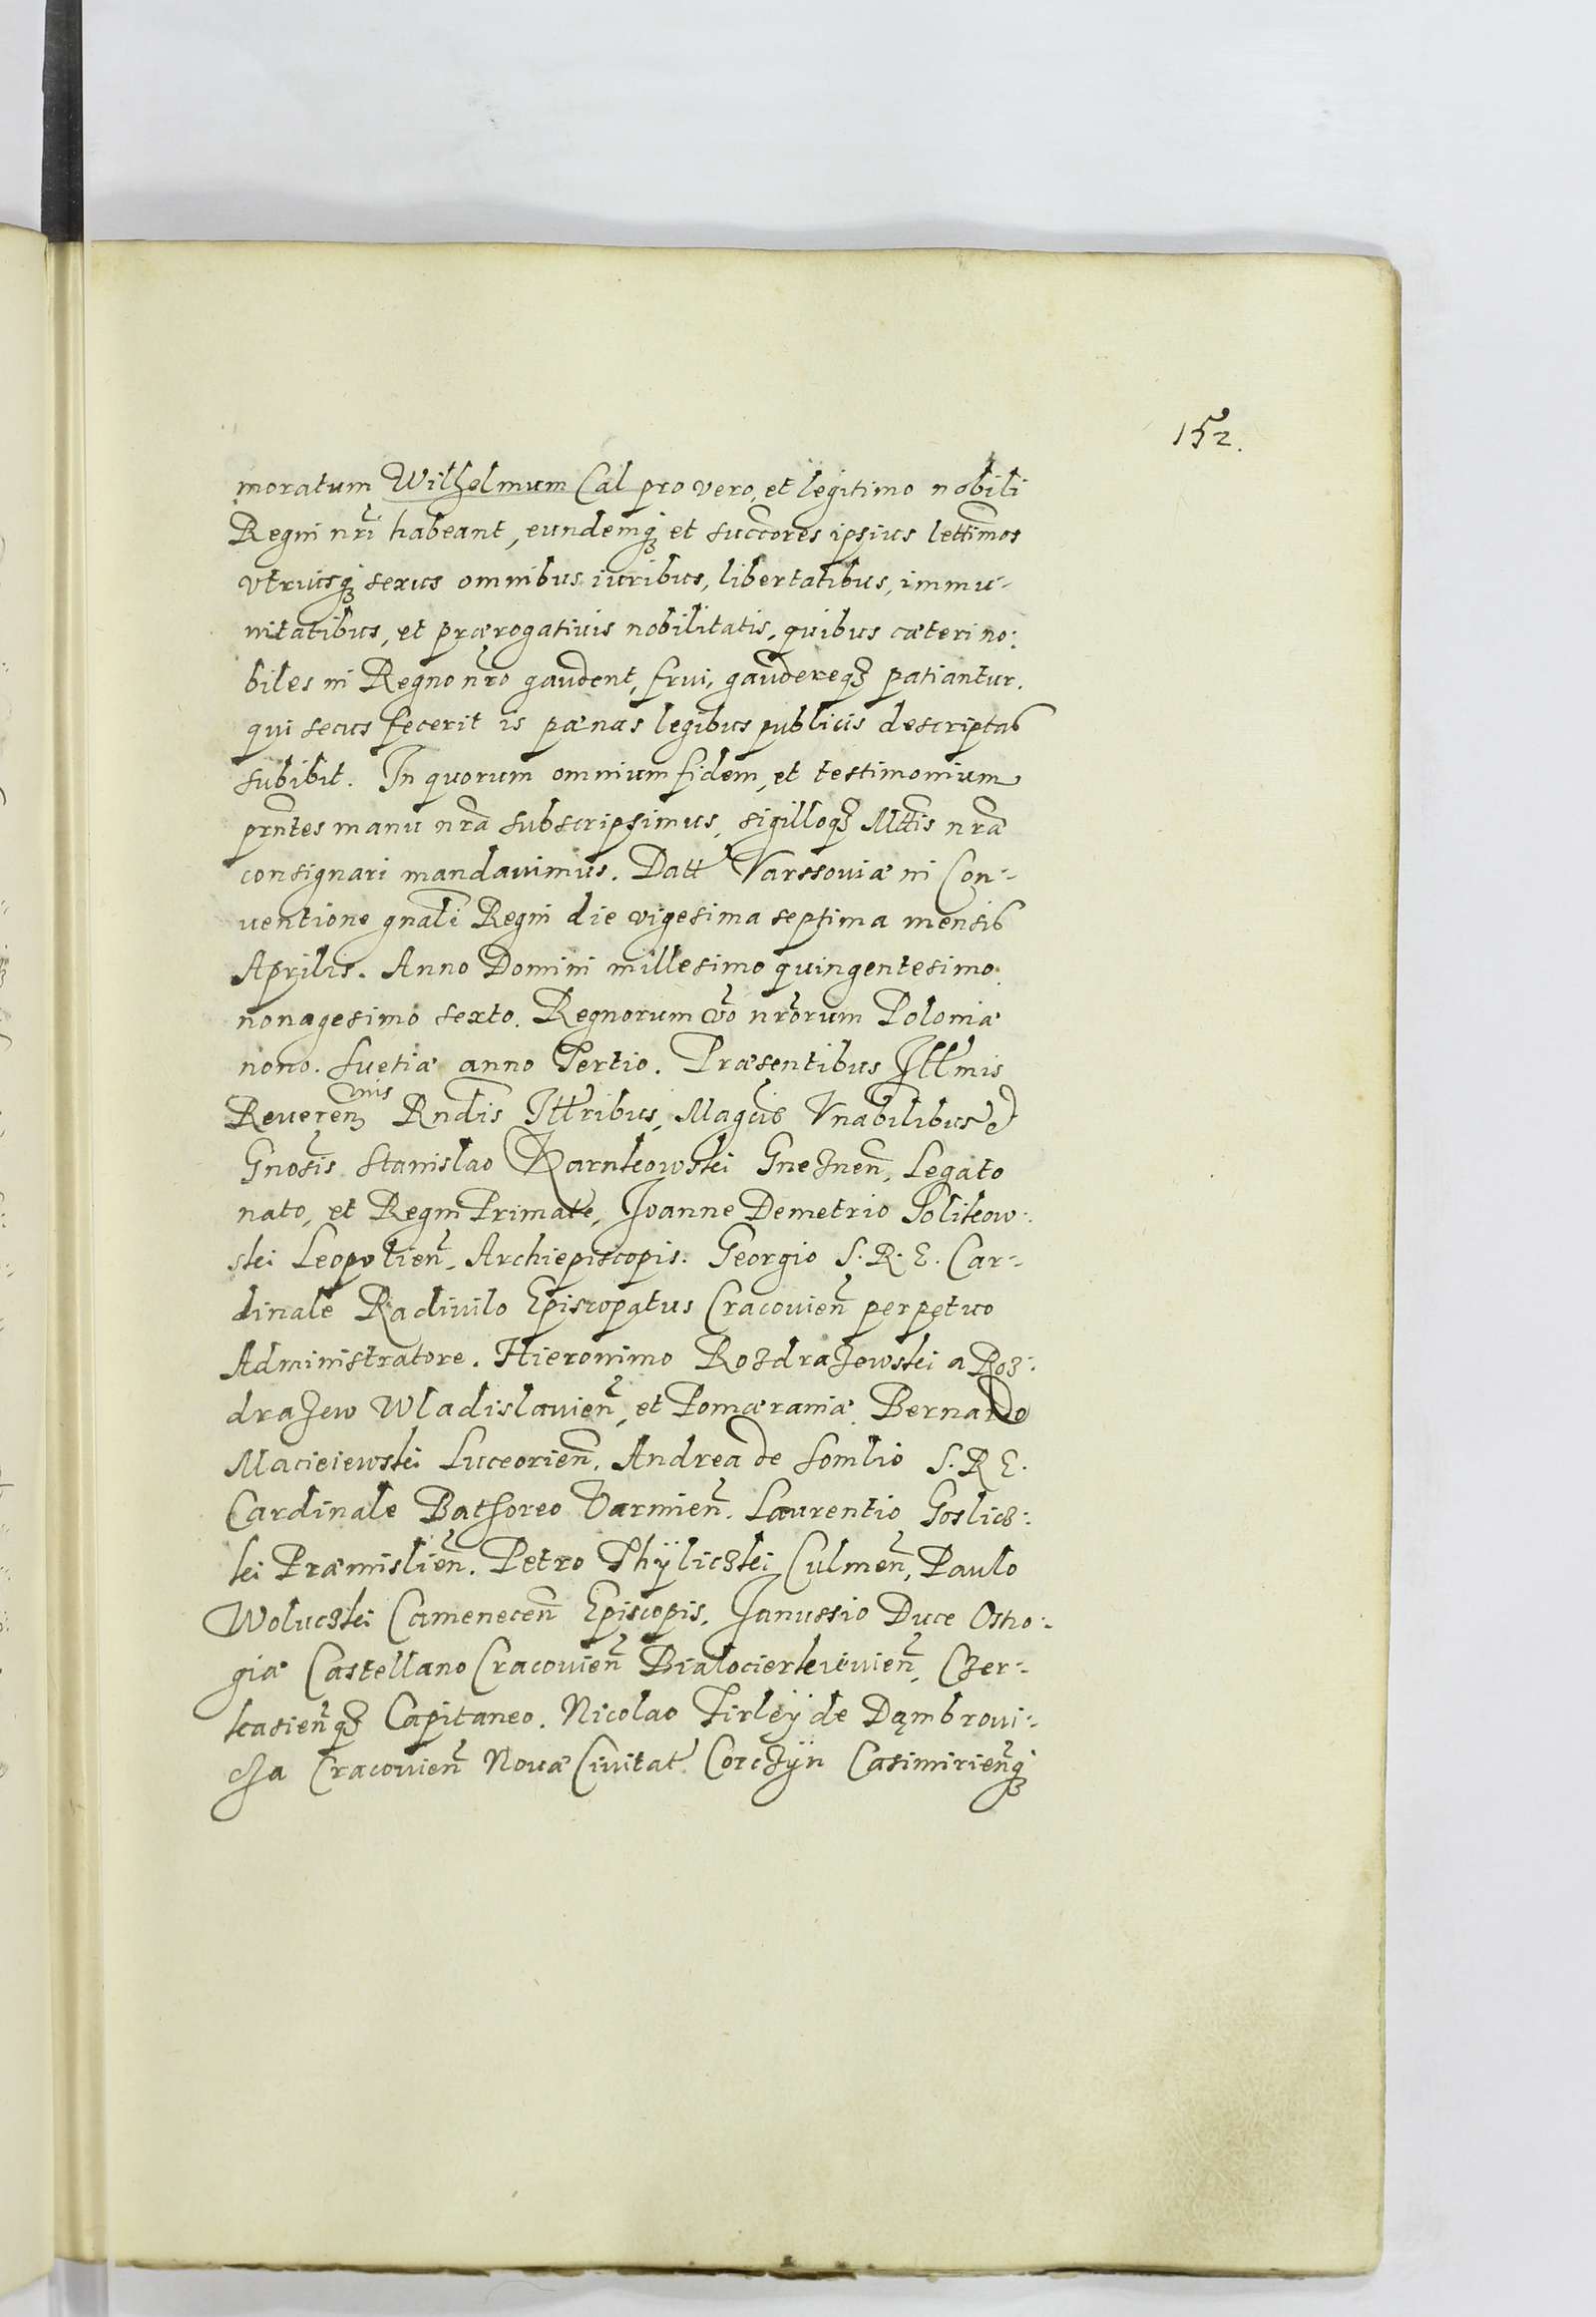 152.
moratum Wilhelmum Cal pro vero, et legitimo nobili
Regni nr̃i habeant, eundemq₃ et succores ipsius lettimos
vtriusq₃ sexus omnibus iuribus, libertatibus, immu-
nitatibus, et prærogatiuis nobilitatis, quibus cæteri no:
biles in Regno nr̃o gaudent, frui, gaudereq₃ patiantur.
qui secus fecerit is pænas legibus publicis descriptas
subibit. In quorum omnium fidem, et testimonium
prñtes manu nrã subscripsimus, sigilloq₃ Mttis nrã
consignari mandauimus. Datt Varssouiæ in Con-
uentione gnãli Regni die vigesima septima mensis
Aprilis. Anno Domini millesimo quingentesimo
nonagesimo sexto. Regnorum võ nrõrum Poloniæ
nono. Suetiæ anno Tertio. Præsentibus Jllmis
Reueren₃mis Rndis Jllribus, Magcis Vnabilibus et
Gnosis Stanislao Karnkowski Gneznen̄, Legato
nato, et Regni Primate, Joanne Demetrio Solikow:
ski Leopolien̄, Archiepiscopis. Georgio S. R. E. Car-
dinale Radiuilo Episcopatus Cracouien̄ perpetuo
Administratore. Hieronimo Rozdrazewski a Roz:
drazew Wladislauien̄, et Pomæraniæ. Bernardo
Macieiewski Luceorien̄. Andrea de Somlio S. R E.
Cardinale Bathoreo Varmien̄. Laurentio Goslicz:
ki Præmislien̄. Petro Thÿliczki Culmen̄, Paulo
Woluczki Camenecen̄ Episcopis. Janussio Duce Ostro:
giæ Castellano Cracouien̄ Bialocierkieuien̄, Czer-
kasien̄q₃ Capitaneo. Nicolao Firleÿ de Dąmbroui-
cza Cracouien̄ Nouæ Ciuitat Corczÿn Casimirien̄q₃